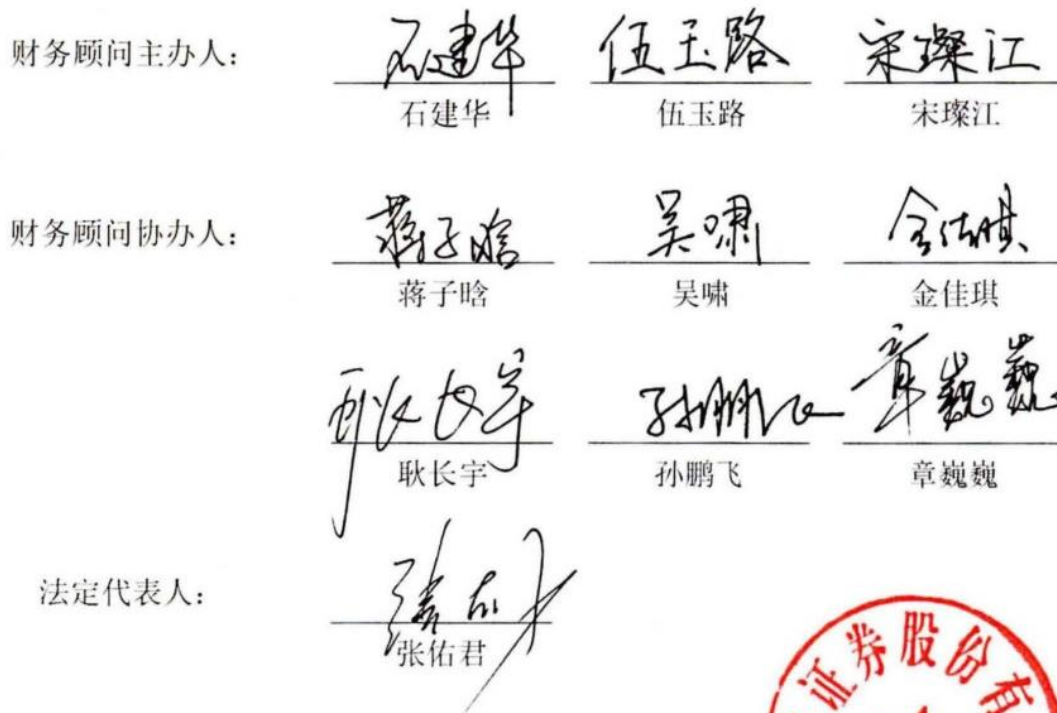 财务顾问主办人：
石建华 伍玉路 宋璨江
石建华 伍玉路 宋璨江
财务顾问协办人：
蒋子晗 吴啸 金佳琪
蒋子晗 吴啸 金佳琪
耿长宇 孙鹏飞 章巍巍
耿长宇 孙鹏飞 章巍巍
法定代表人：
张佑君
张佑君
证券股份有